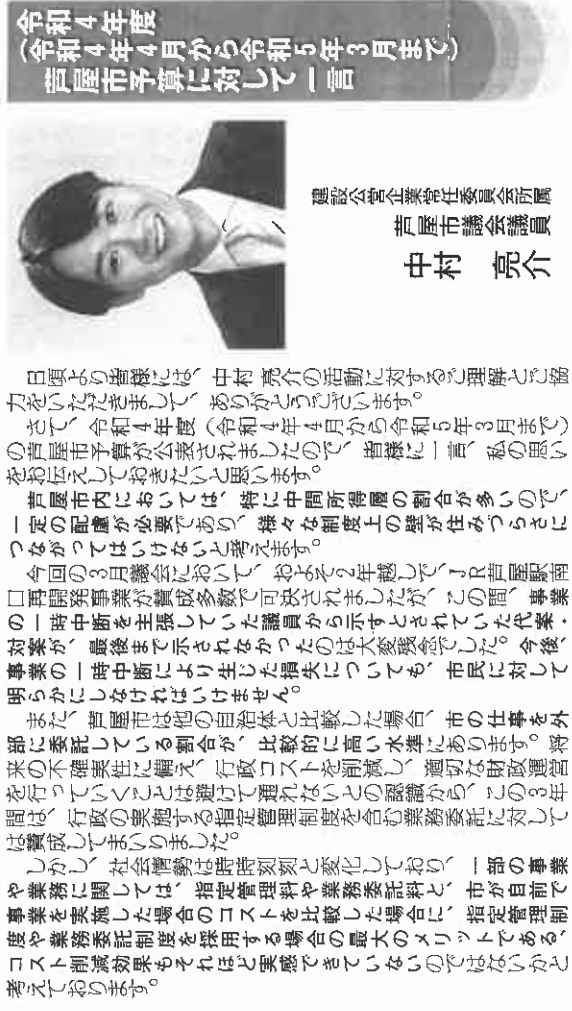 令和4年度
（令和4年4月から令和5年3月まで）
芦屋市予算に対して一言
建設公営企業常任委員会所属
芦屋市議会議員
中村 亮介
日頃より皆様には、中村 亮介の活動に対するご理解とご協
力をいただきまして、ありがとうございます。
さて、令和4年度（令和4年4月から令和5年3月まで）
の芦屋市予算が公表されましたので、皆様に一言、私の思い
をお伝えしておきたいと思います。
芦屋市内においては、特に中間所得層の割合が多いので、
一定の配慮が必要であり、様々な制度上の壁が住みづらさに
つながってはいけないと考えます。
今回の3月議会において、およそ2年越しで、JR芦屋駅南
口再開発事業が賛成多数で可決されましたが、この間、事業
の一時中断を主張していた議員から示すとされていた代案・
対案が、最後まで示されなかったのは大変残念でした。今後、
事業の一時中断により生じた損失についても、市民に対して
明らかにしなければいけません。
また、芦屋市は他の自治体と比較した場合、市の仕事を外
部に委託している割合が、比較的に高い水準にあります。将
来の不確実性に備え、行政コストを削減し、適切な財政運営
を行っていくことは避けて通れないとの認識から、この3年
間は、行政の実施する指定管理制度を含む業務委託に対して
は賛成してまいりました。
しかし、社会情勢は時時刻刻と変化しており、一部の事業
や業務に関しては、指定管理料や業務委託料と、市が自前で
事業を実施した場合のコストを比較した場合に、指定管理制
度や業務委託制度を採用する場合の最大のメリットである、
コスト削減効果もそれほど実感できていないのではないかと
考えております。